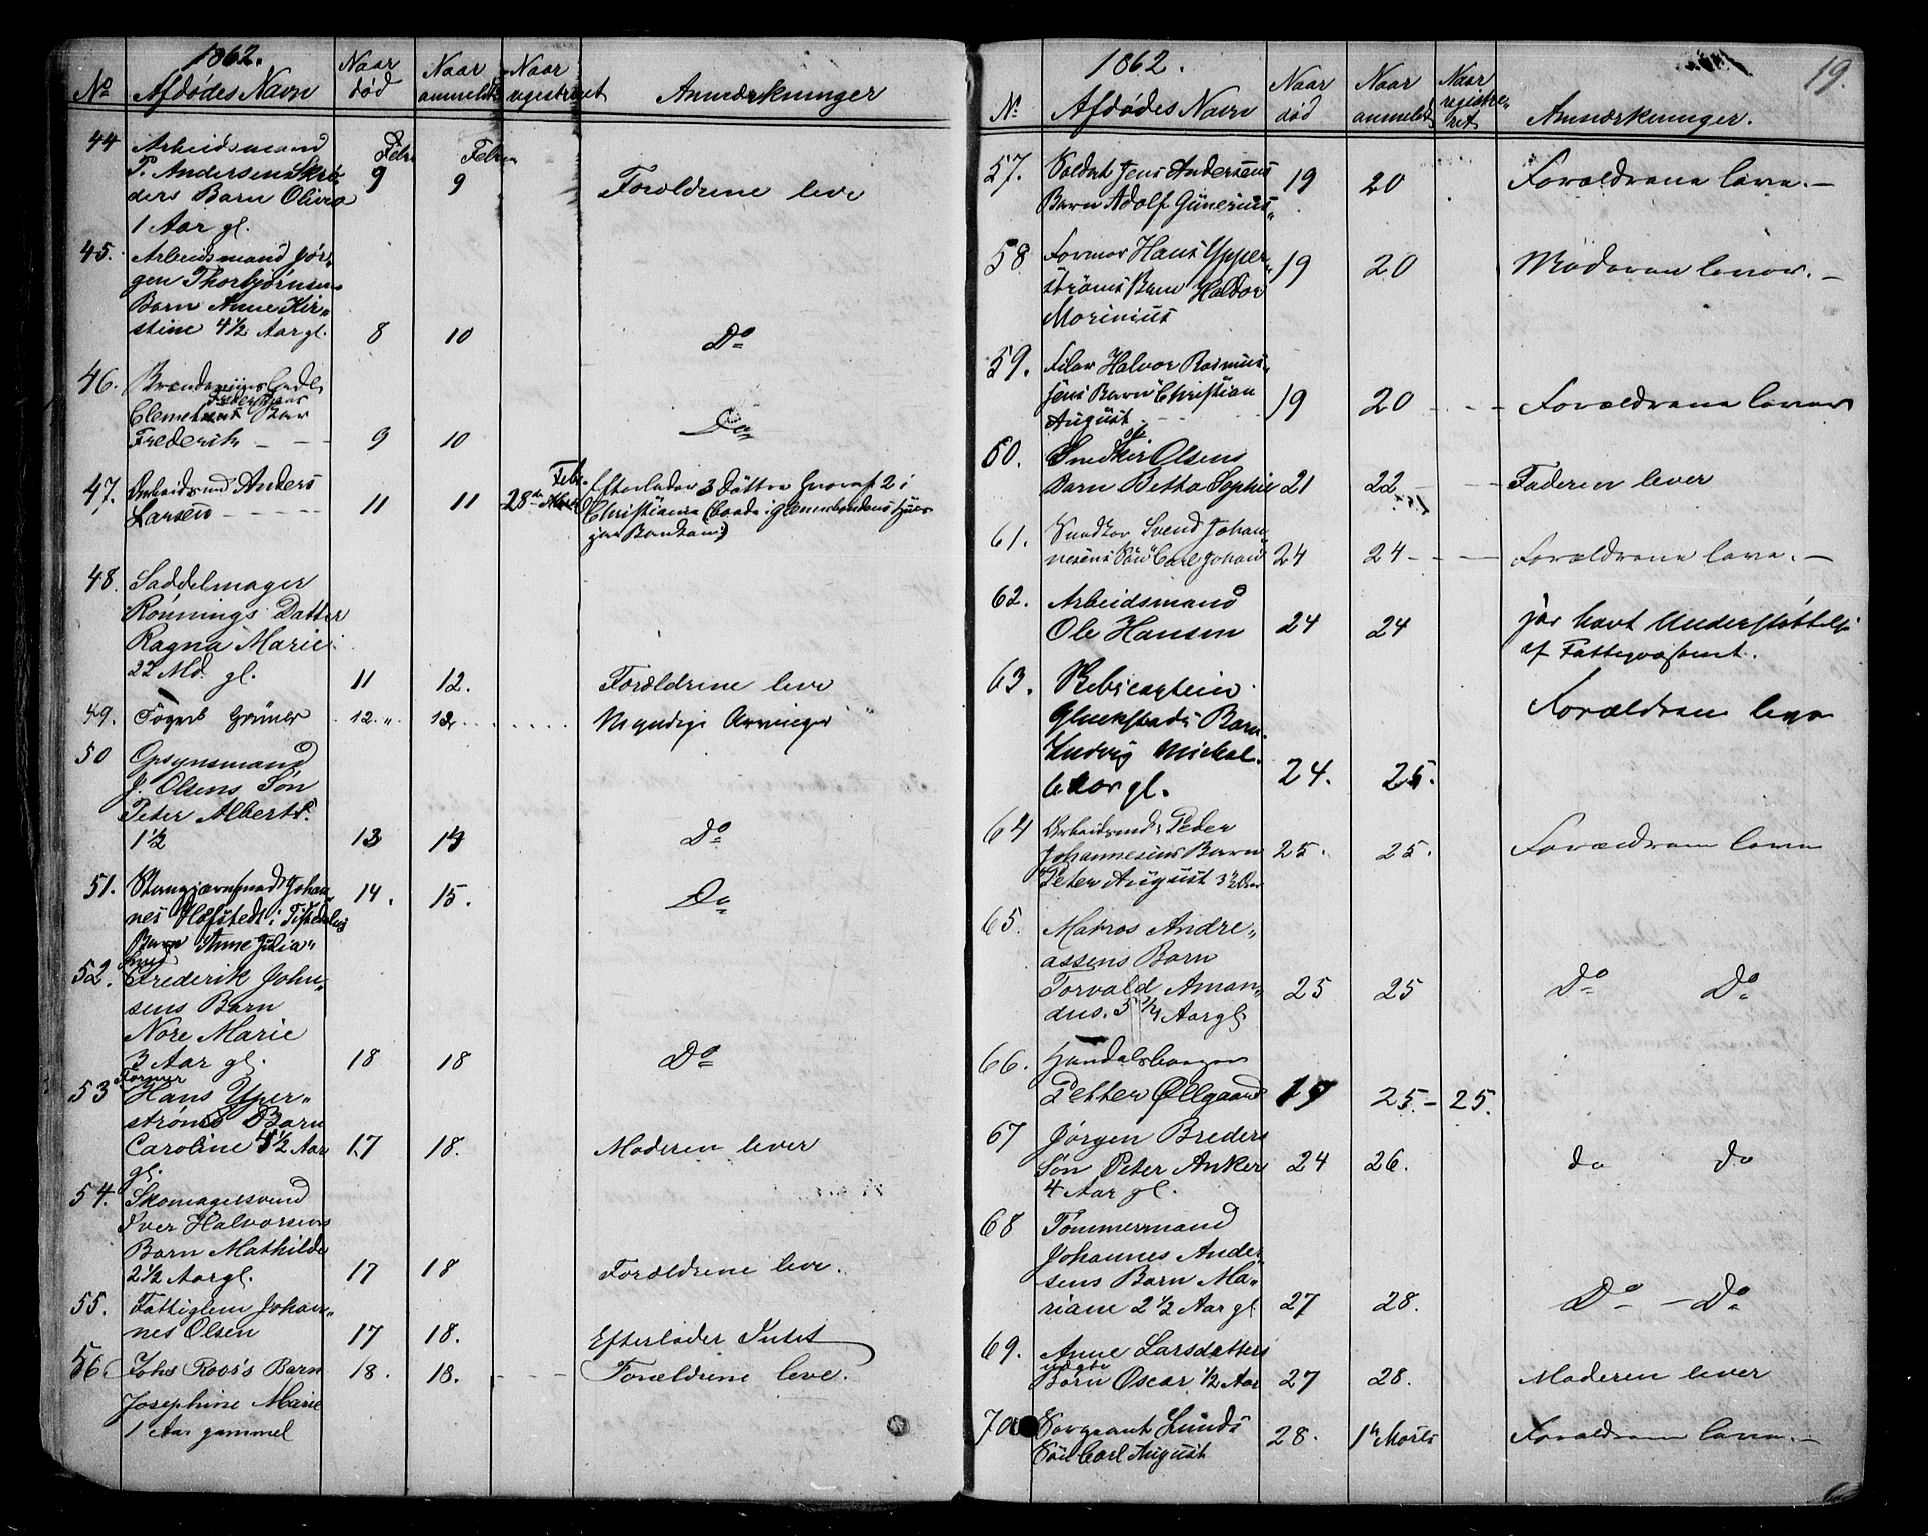 1862.
No Afdødes Navn Naar død Naar anmeldt Naar registreret Anmærkninger
44 Arbeidsmand Febr Febr
P. Andersen Skrø- 9 9 Forældrene leve
ders Barn Olivia
1 Aar gl.
45. Arbeidsmand Jør-
gen Thorbjørnsens
Barn Anne Kir-
stine 4½ Aar gl. 8 10 Do
46.
Clemet Frederiksens
Frederik 9 10 Do
47. Arbeidsmd Anders Febr. Efterlader 3 Døttre hvoraf 2 i
Larsen 11 11 28de Christiania
48. Saddelmager
Rønnings Datter
Ragna Marie
22 Md. gl. 11 12. Forældrene leve
49. Fogert Grüner 12. 12 Myndige Arvinger
50 Opsynsmand
J. Olsens Søn
Peter Albert
1½ 13 14 Do
51. Johan- 14. 15. Do
nes i Tistedalen
Barn Anne Julia
52. Smed
Frederik John-
sens Barn
Nore Marie
3 Aar gl. 18 18 Do
53 Former
Hans Yper-
strøms Barn
Caroline 4½ Aar 17 18. Moderen lever
gl.
54. Skomagersvend
Iver Halvorsens
Barn Mathilde
2½ Aar gl. 17 18 Forældrene leve.
55. Fattiglem Johan-
nes Olsen 17 18. Efterlader Intet
56. Johs Roos's Barn 18. 18. Forældrene leve.
Josephine Marie
1 Aar gammel
1862. 19.
No Afdødes Navn Naar død Naar anmeldt Naar registreret Anmærkninger.
57. Soldat Jens Andersens 19 20 Forældrene leve.
Barn Adolf Gunerius
58 Former Hans Ypper- 19 20 Moderen lever.
strøms Barn Haldor
Morinius
59. Filer Halvor Rasmus-
sens Barn Christian 19 20 Forældrene lever
August
60. Snedker Olsens
Barn Betta Sophie 21 22 Faderen lever
61. Snedker Svend Johan-
nesens Søn Carl Johan 24 24 Forældrene leve.
62. Arbeidsmand
Ole Hansen 24 24 har havt Understøttelse
af Fattigvæsenet.
63. Forældrene leve
Gluckstads Barn
Ludvig Michal
6 Aar gl. 24. 25.
64 Arbeidsmd Peder
Johannesens Barn 25. 25. Forældrene leve
Peter August 3½ Aar
65. Matros Andre-
assens Barn
Torvald Aman- 25 25 Do Do
dus. 5¼ Aar gl.
66. Handelsborger
Petter Øllgaard 19 25. 25.
67 Jørgen Breders
Søn Peter Anker 24 26. do do
4 Aar gl.
68 Tømmermand
Johannes Ander-
sens Barn Ma-
riane 2½ Aar gl. 27 28. Do Do
69. Anne Larsdatters
uægte
Barn Oscar ½ Aar 27 28. Moderen lever
70 Sergeant Lunds 28. 1ste Marts Forældrene leve.
Søn Carl August